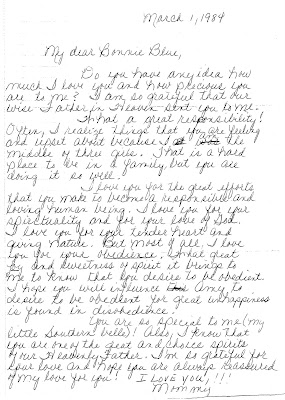 March 1, 1984
My dear Bonnie Blue,
Do you have any idea how
much I love you and how precious you
are to me? I am so grateful that our
wise Father in Heaven sent you to me.
What a great responsibility!
Often, I realize things that you are feeling
and upset about because I
middle of three girls. That is a hard
place to be in a family, but you are
doing it so well.
I love you for the great efforts
that you make to become a responsible and
loving human being. I love you for your
spirituality and for your love of God.
I love you for your tender heart and
giving nature. But most of all, I love
you for your obedience. What great
joy and sweetness of spirit it brings to
me to know that you desire to be obedient.
I hope you will influence Amy, to
desire to be obedient for great unhappiness
is found in disobedience.
You are so special to me (my
little Southern belle)! Also, I know that
you are one of the great and choice spirits
of our Heavenly Father. I'm so grateful for
your love and hope you are always reassured
of my love for you! I LOVE YOU, !!!
Mommy